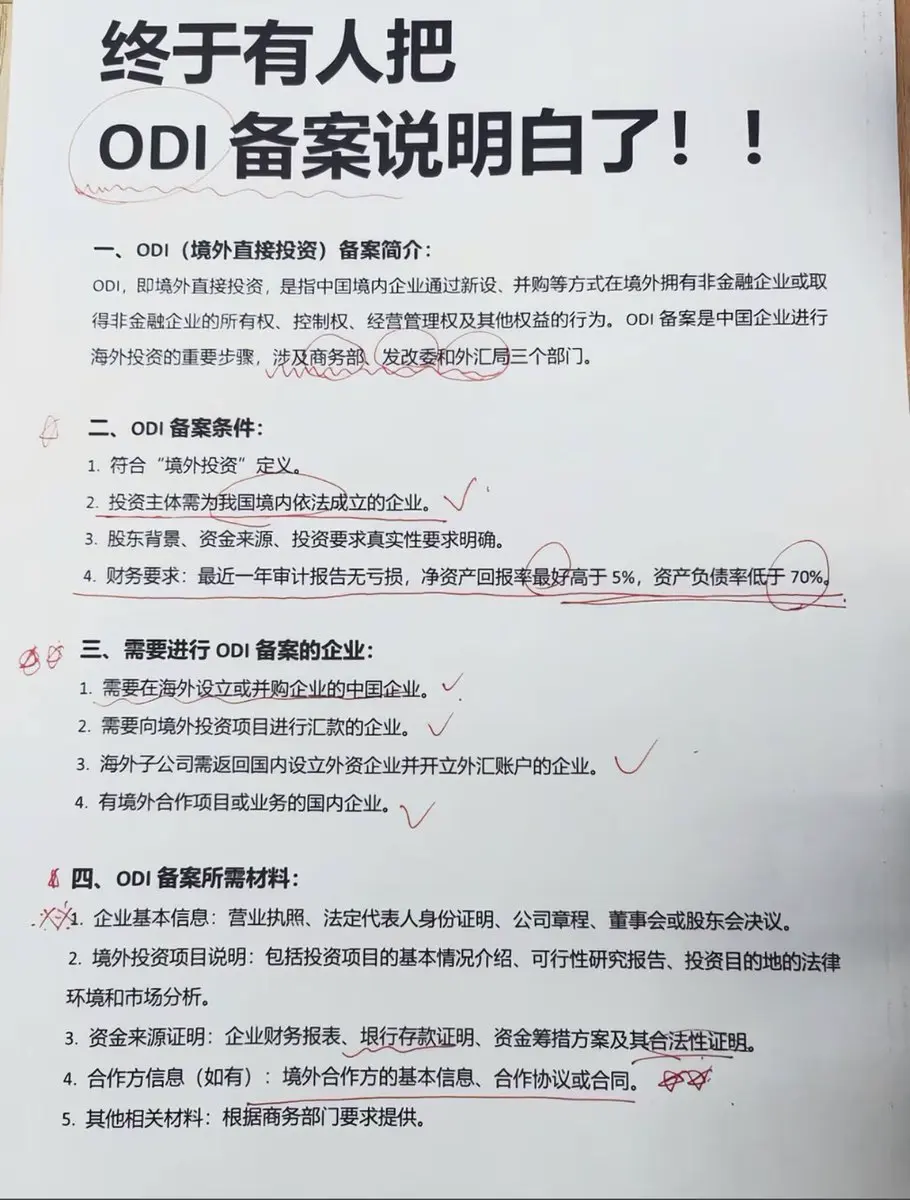 终于有人把
ODI 备案说明白了！！
一、ODI（境外直接投资）备案简介：
ODI，即境外直接投资，是指中国境内企业通过新设、并购等方式在境外拥有非金融企业或取
得非金融企业的所有权、控制权、经营管理权及其他权益的行为。ODI 备案是中国企业进行
海外投资的重要步骤，涉及商务部、发改委和外汇局三个部门。
二、ODI 备案条件：
1. 符合“境外投资”定义。
2. 投资主体需为我国境内依法成立的企业。
3. 股东背景、资金来源、投资要求真实性要求明确。
4. 财务要求：最近一年审计报告无亏损，净资产回报率最好高于 5%，资产负债率低于 70%。
三、需要进行 ODI 备案的企业：
1. 需要在海外设立或并购企业的中国企业。
2. 需要向境外投资项目进行汇款的企业。
3. 海外子公司需返回国内设立外资企业并开立外汇账户的企业。
4. 有境外合作项目或业务的国内企业。
四、ODI 备案所需材料：
1. 企业基本信息：营业执照、法定代表人身份证明、公司章程、董事会或股东会决议。
2. 境外投资项目说明：包括投资项目的基本情况介绍、可行性研究报告、投资目的地的法律
环境和市场分析。
3. 资金来源证明：企业财务报表、垠行存款证明、资金筹措方案及其合法性证明。
4. 合作方信息（如有）：境外合作方的基本信息、合作协议或合同。
5. 其他相关材料：根据商务部门要求提供。